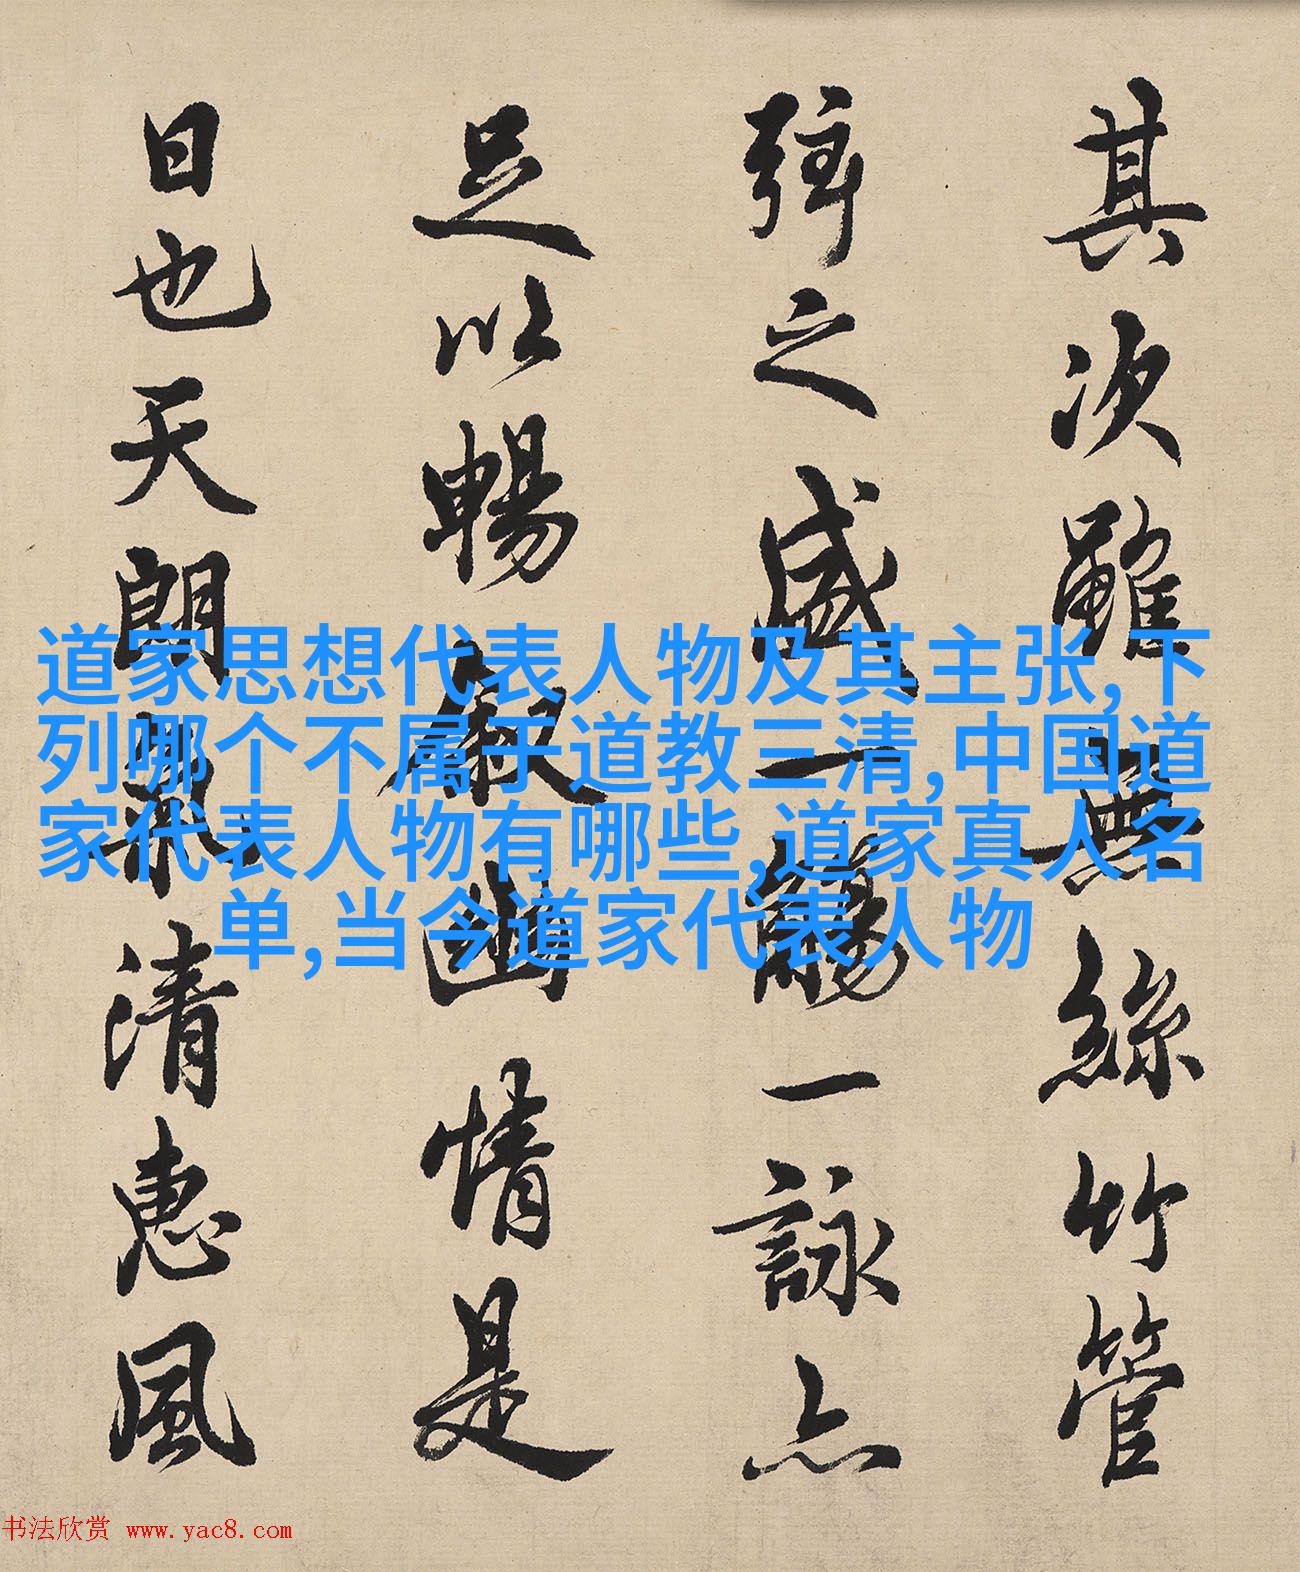 其次雖無絲竹管
弦之盛一觴一詠亦
足以暢敘幽情是
日也天朗氣清惠風
道家思想代表人物及其主张,下
列哪个不属于道教三清,中国道
家代表人物有哪些,道家真人名
单,当今道家代表人物
书法欣赏 www.yac8.com